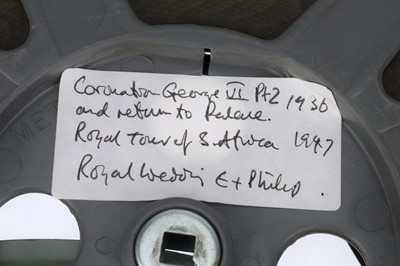 Coronation George VI Pt2 1936
and return to Palace.
Royal Tour of S. Africa 1947
Royal Wedding E + Philip.
MET